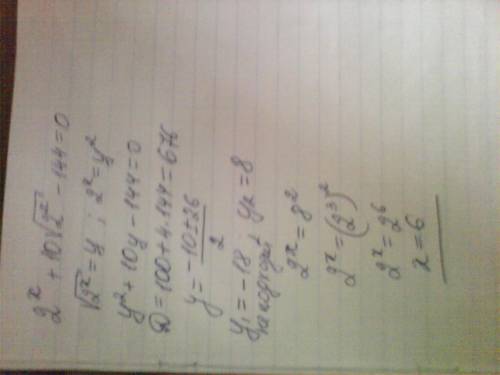 2^x + 10√2^x - 144 = 0
√2^x = y ; 2^x = y²
y² + 10y - 144 = 0
D = 100 + 4·144 = 676
y = (-10 ± 26)/2
y₁ = -18 y₂ = 8
не подходит
2^x = 8²
2^x = (2³)²
2^x = 2⁶
x = 6